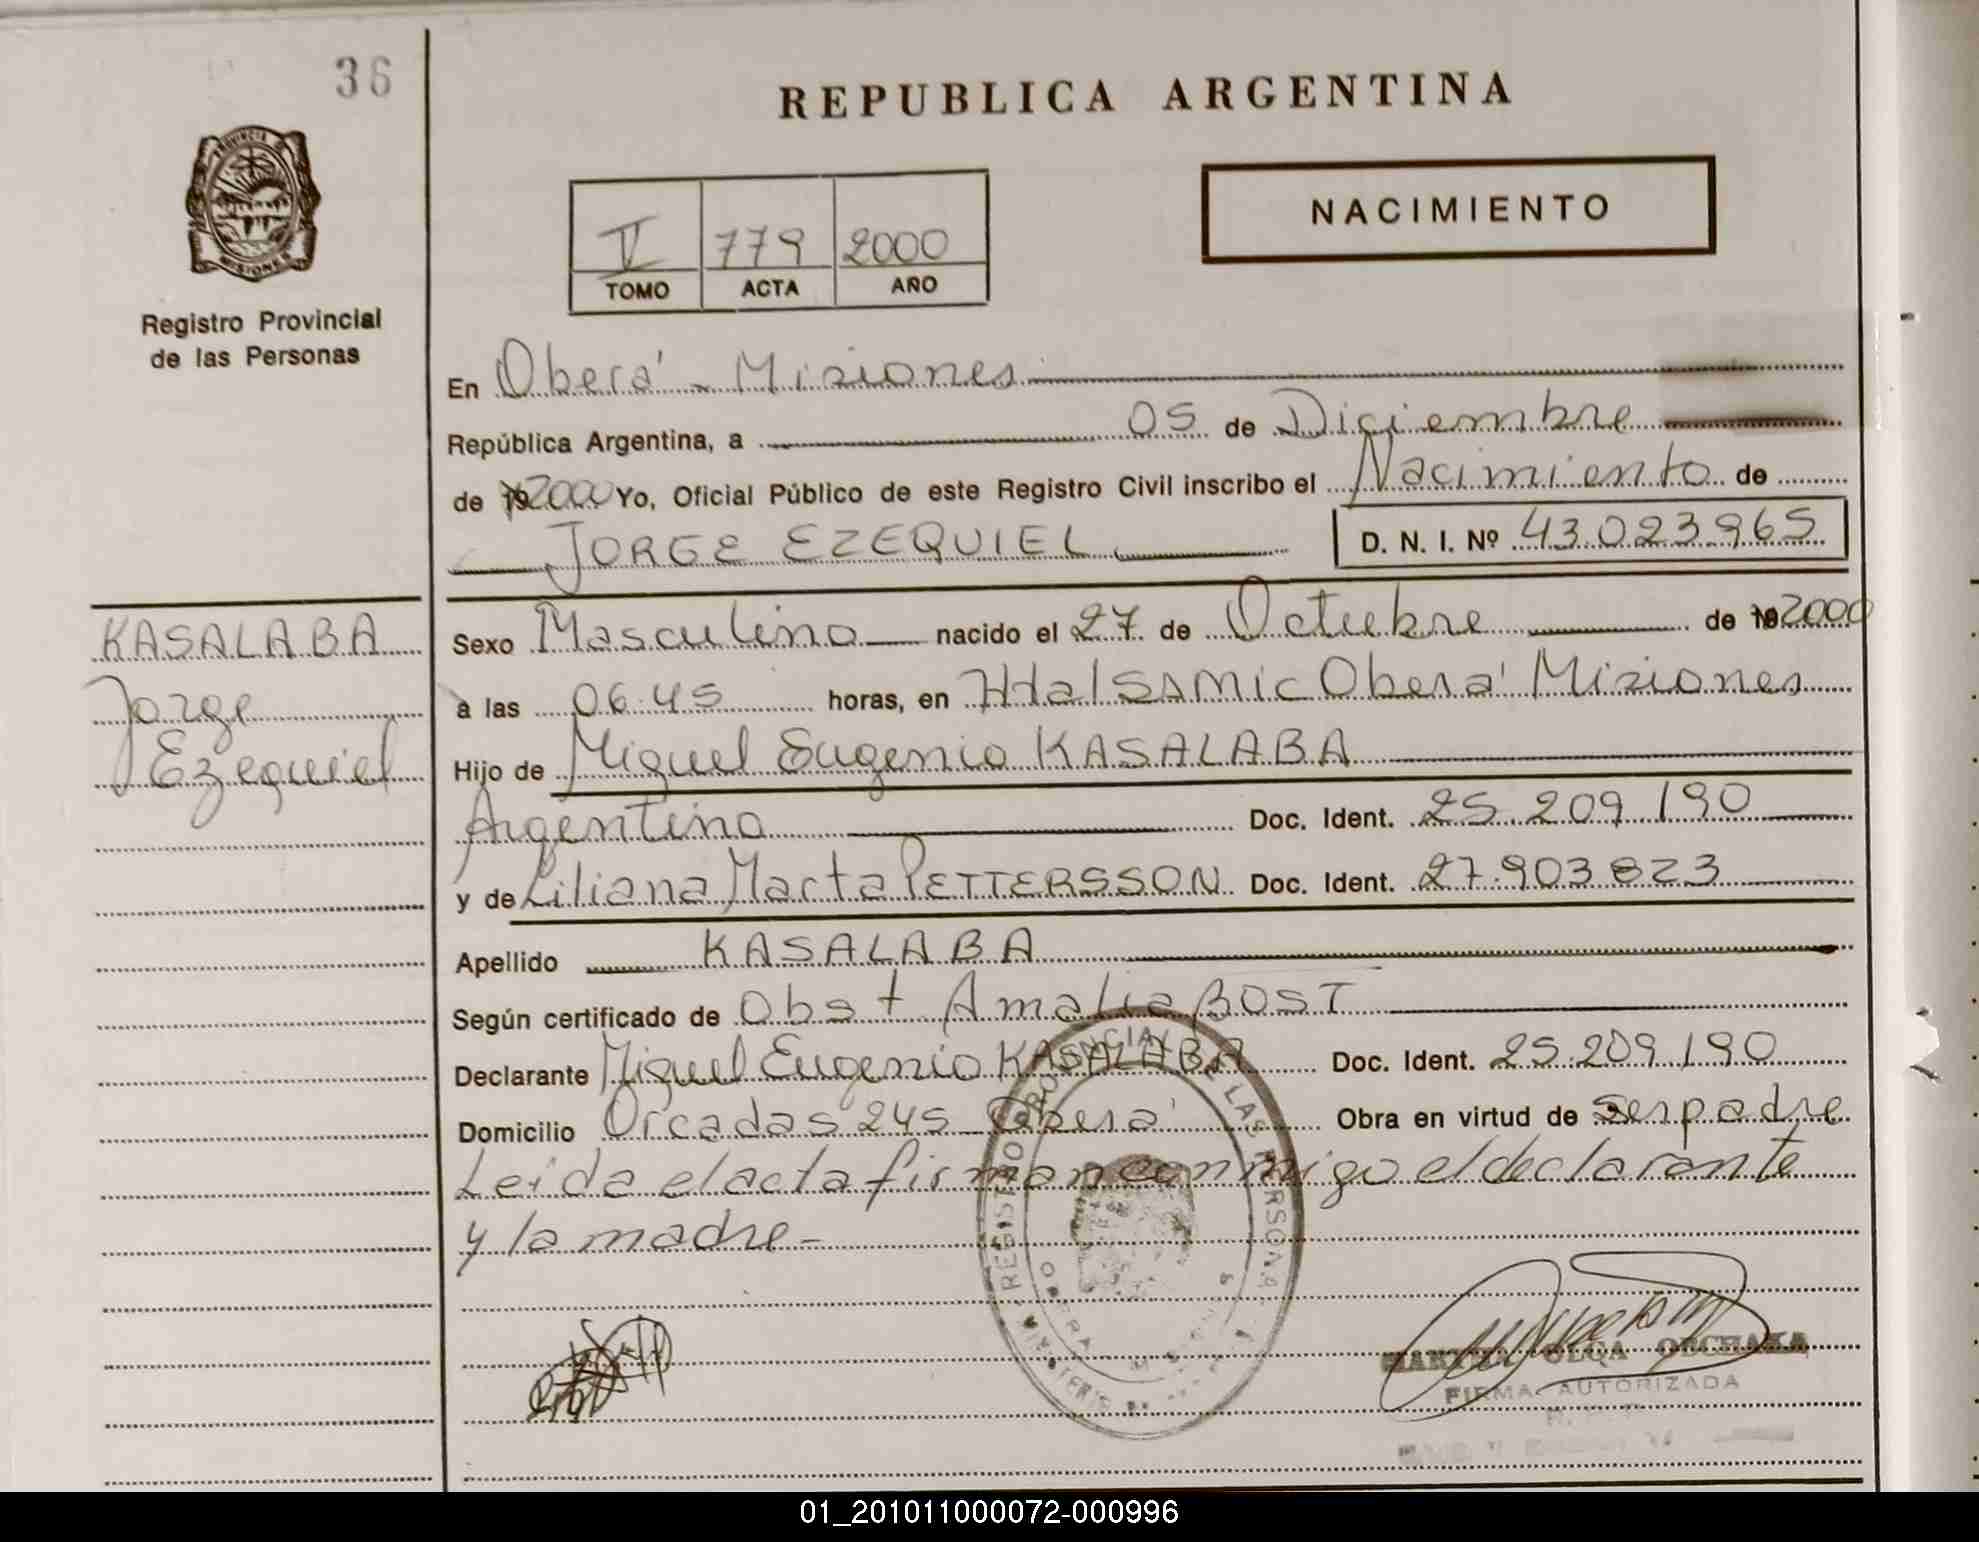 36
REPUBLICA ARGENTINA
PROVINCIA
MISIONES
Registro Provincial
de las Personas
V 779 2000
TOMO ACTA AÑO
NACIMIENTO
En Oberá - Misiones
República Argentina, a 05 de Diciembre
de 19 2000 Yo, Oficial Público de este Registro Civil inscribo el Nacimiento de
JORGE EZEQUIEL D. N. I. Nº 43.023.965
KASALABA
Jorge
Ezequiel
Sexo Masculino nacido el 27 de Octubre de 19 2000
a las 06.45 horas, en HtalSAMIC Oberá Misiones
Hijo de Miguel Eugenio KASALABA
Argentino Doc. Ident. 25.209.190
y de Liliana Marta PETTERSSON Doc. Ident. 27.903.823
Apellido KASALABA
Según certificado de Obst Amalia BOST
Declarante Miguel Eugenio KASALABA Doc. Ident. 25.209.190
Domicilio Orcadas 245 Oberá Obra en virtud de Ser padre
Leida el acta firman conmigo el declarante
y la madre -
REGISTRO PROVINCIAL DE LAS PERSONAS
OLGA
FIRMA AUTORIZADA
01_201011000072-000996